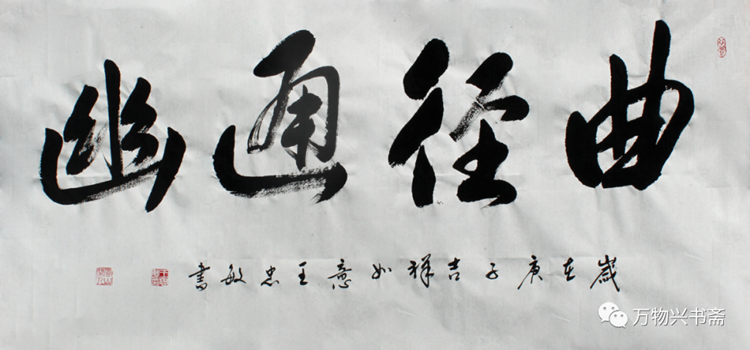 曲径通幽
岁在庚子吉祥如意王忠敏书
万物兴书斋